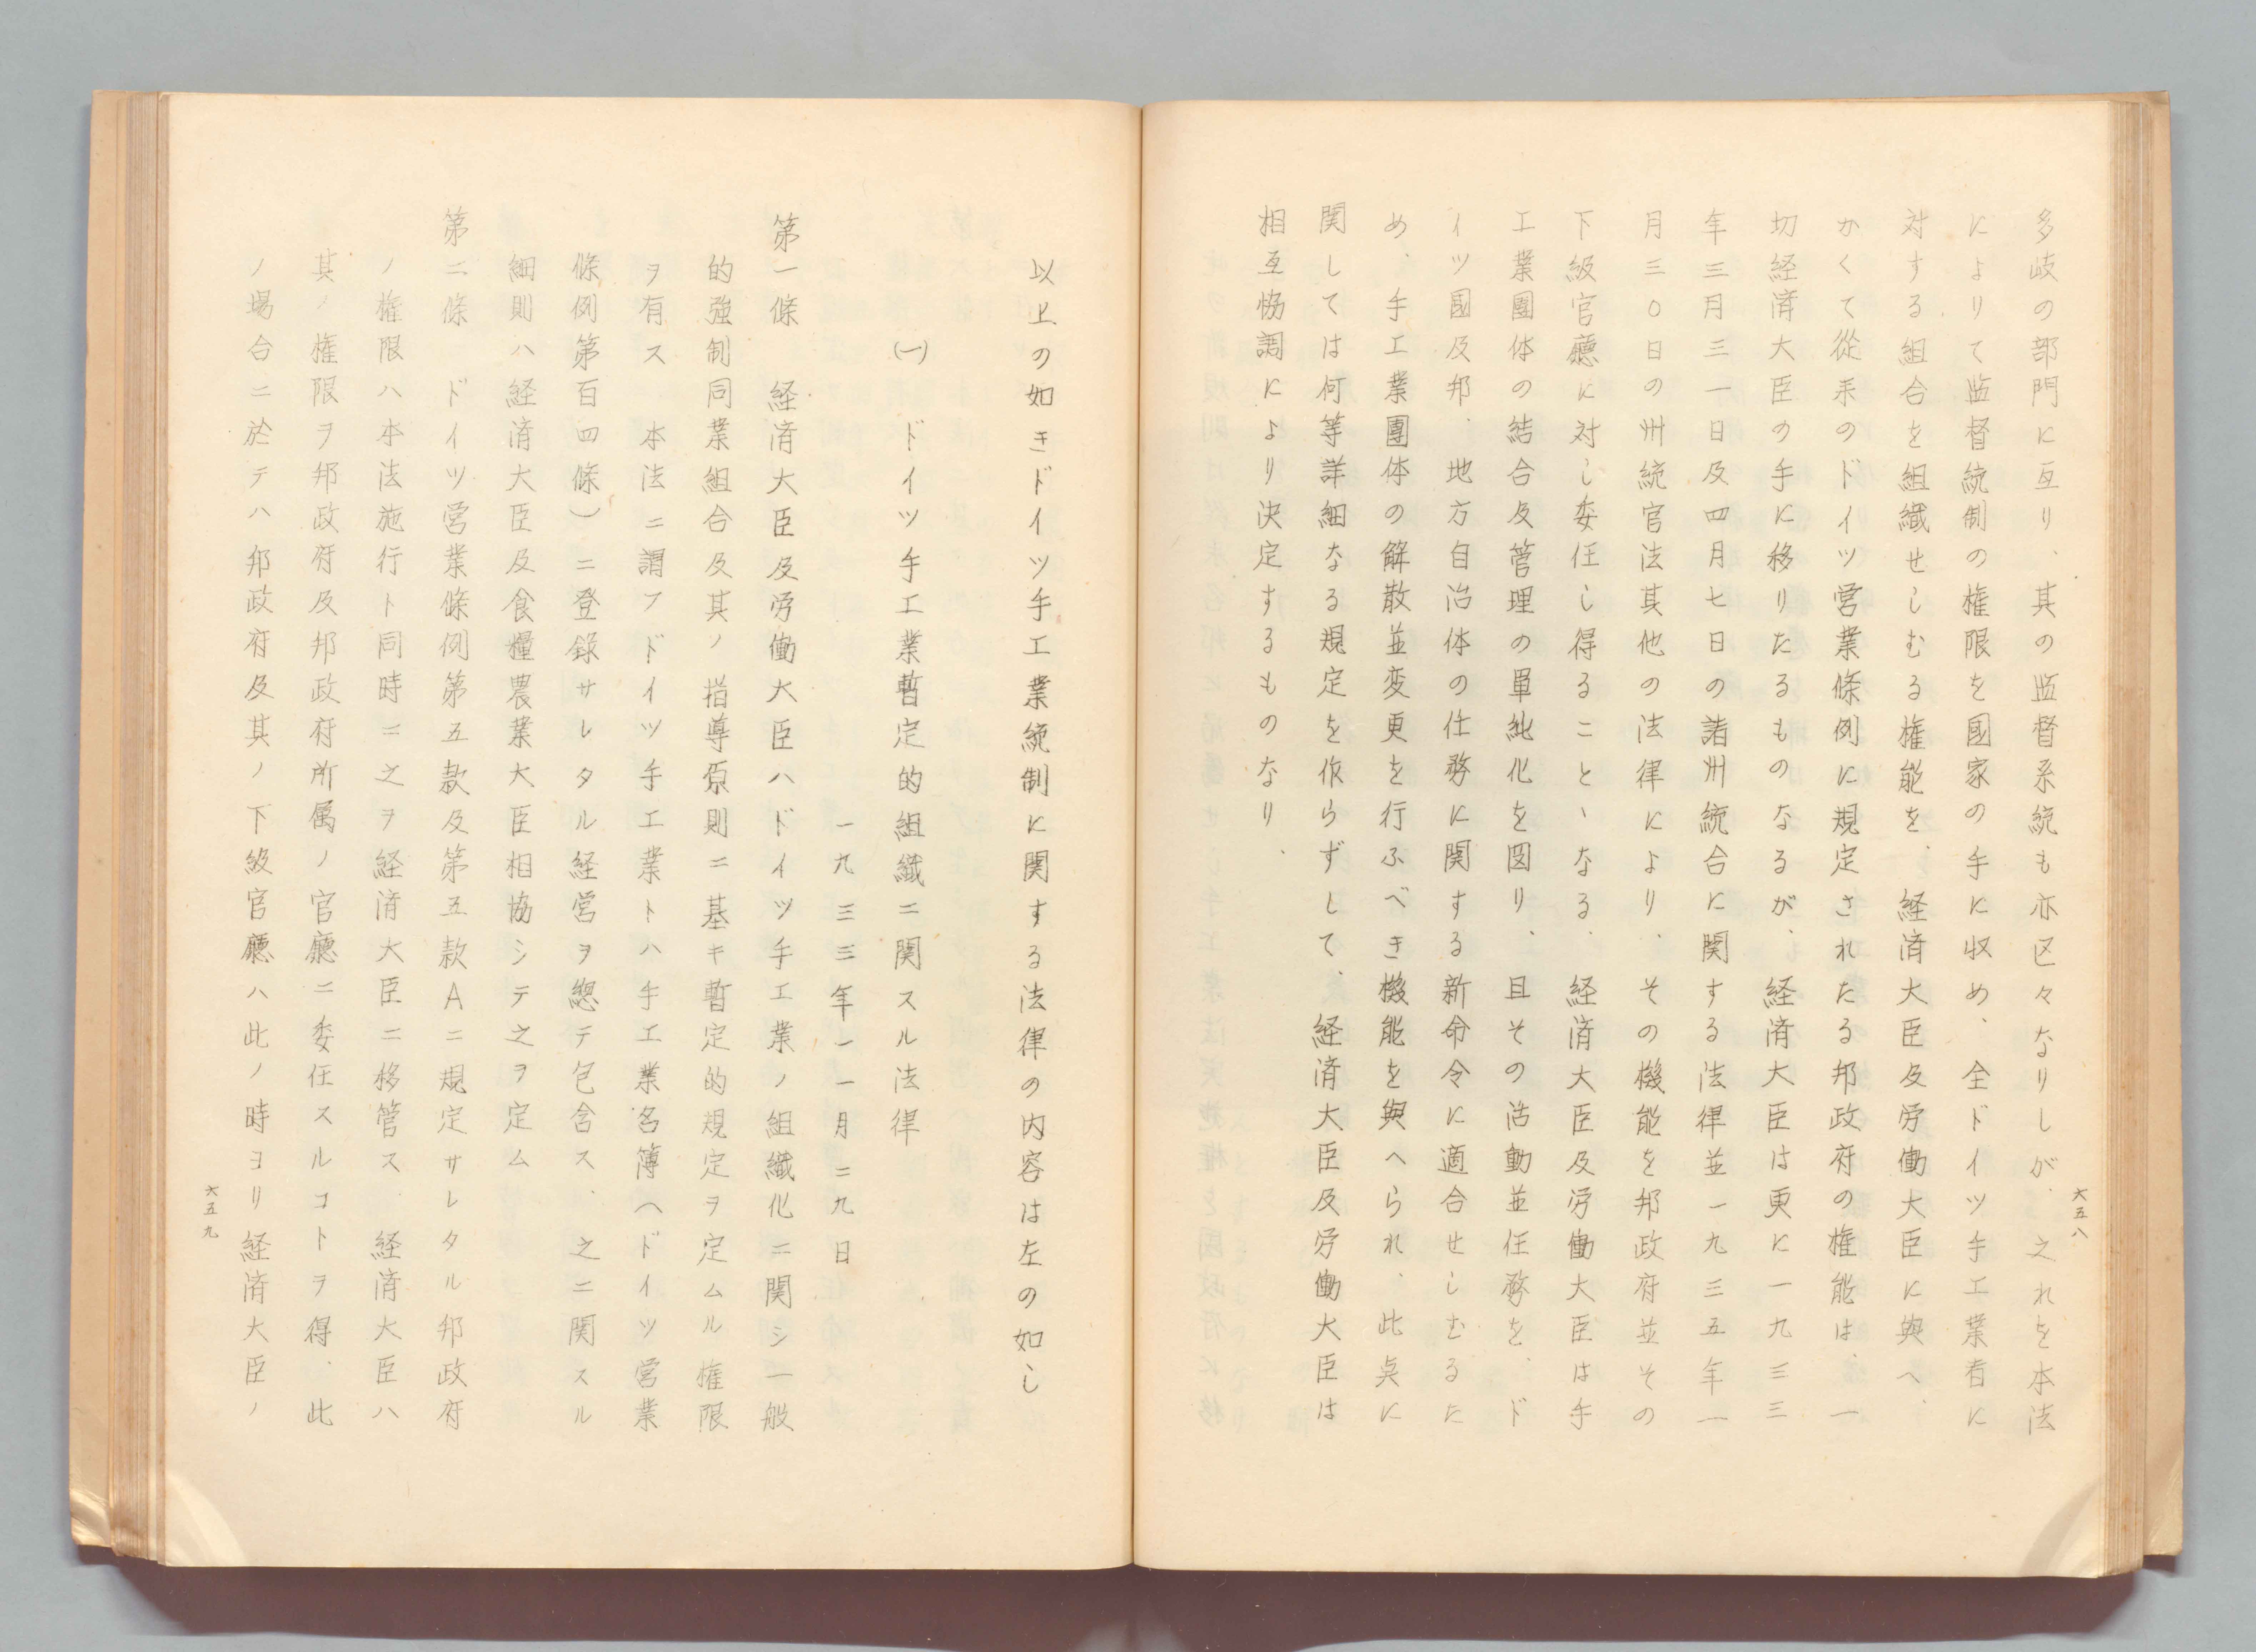 多岐の部門に亙り、其の監督系統も亦区々なりしが、之れを本法
によりて監督統制の権限を國家の手に収め、全ドイツ手工業者に
対する組合を組織せしむる権能を、経済大臣及労働大臣に與へ、
かくて從来のドイツ営業條例に規定されたる邦政府の権能は、一
切経済大臣の手に移りたるものなるが、経済大臣は更に一九三三
年三月三一日及四月七日の諸州統合に関する法律並一九三五年一
月三〇日の州統官法其他の法律により、その機能を邦政府並その
下級官廳に対し委任し得ることゝなる、経済大臣及労働大臣は手
工業團体の結合及管理の単純化を図り、且その活動並任務を、ド
イツ國及邦、地方自治体の仕務に関する新命令に適合せしむるた
め、手工業團体の解散並変更を行ふべき機能を與へられ、此点に
関しては何等詳細なる規定を作らずして、経済大臣及労働大臣は
相互協調により決定するものなり、
六五八
以上の如きドイツ手工業統制に関する法律の内容は左の如し
(一) ドイツ手工業暫定的組織ニ関スル法律
一九三三年一一月二九日
第一條 経済大臣及労働大臣ハドイツ手工業ノ組織化ニ関シ一般
的強制同業組合及其ノ指導原則ニ基キ暫定的規定ヲ定ムル権限
ヲ有ス 本法ニ謂フドイツ手工業トハ手工業名簿(ドイツ営業
條例第百四條)ニ登録サレタル経営ヲ總テ包含ス、之ニ関スル
細則ハ経済大臣及食糧農業大臣相協シテ之ヲ定ム
第二條 ドイツ営業條例第五款及第五款Aニ規定サレタル邦政府
ノ権限ハ本法施行ト同時ニ之ヲ経済大臣ニ移管ス 経済大臣ハ
其ノ権限ヲ邦政府及邦政府所属ノ官廳ニ委任スルコトヲ得、此
ノ場合ニ於テハ邦政府及其ノ下級官廳ハ此ノ時ヨリ経済大臣ノ
六五九